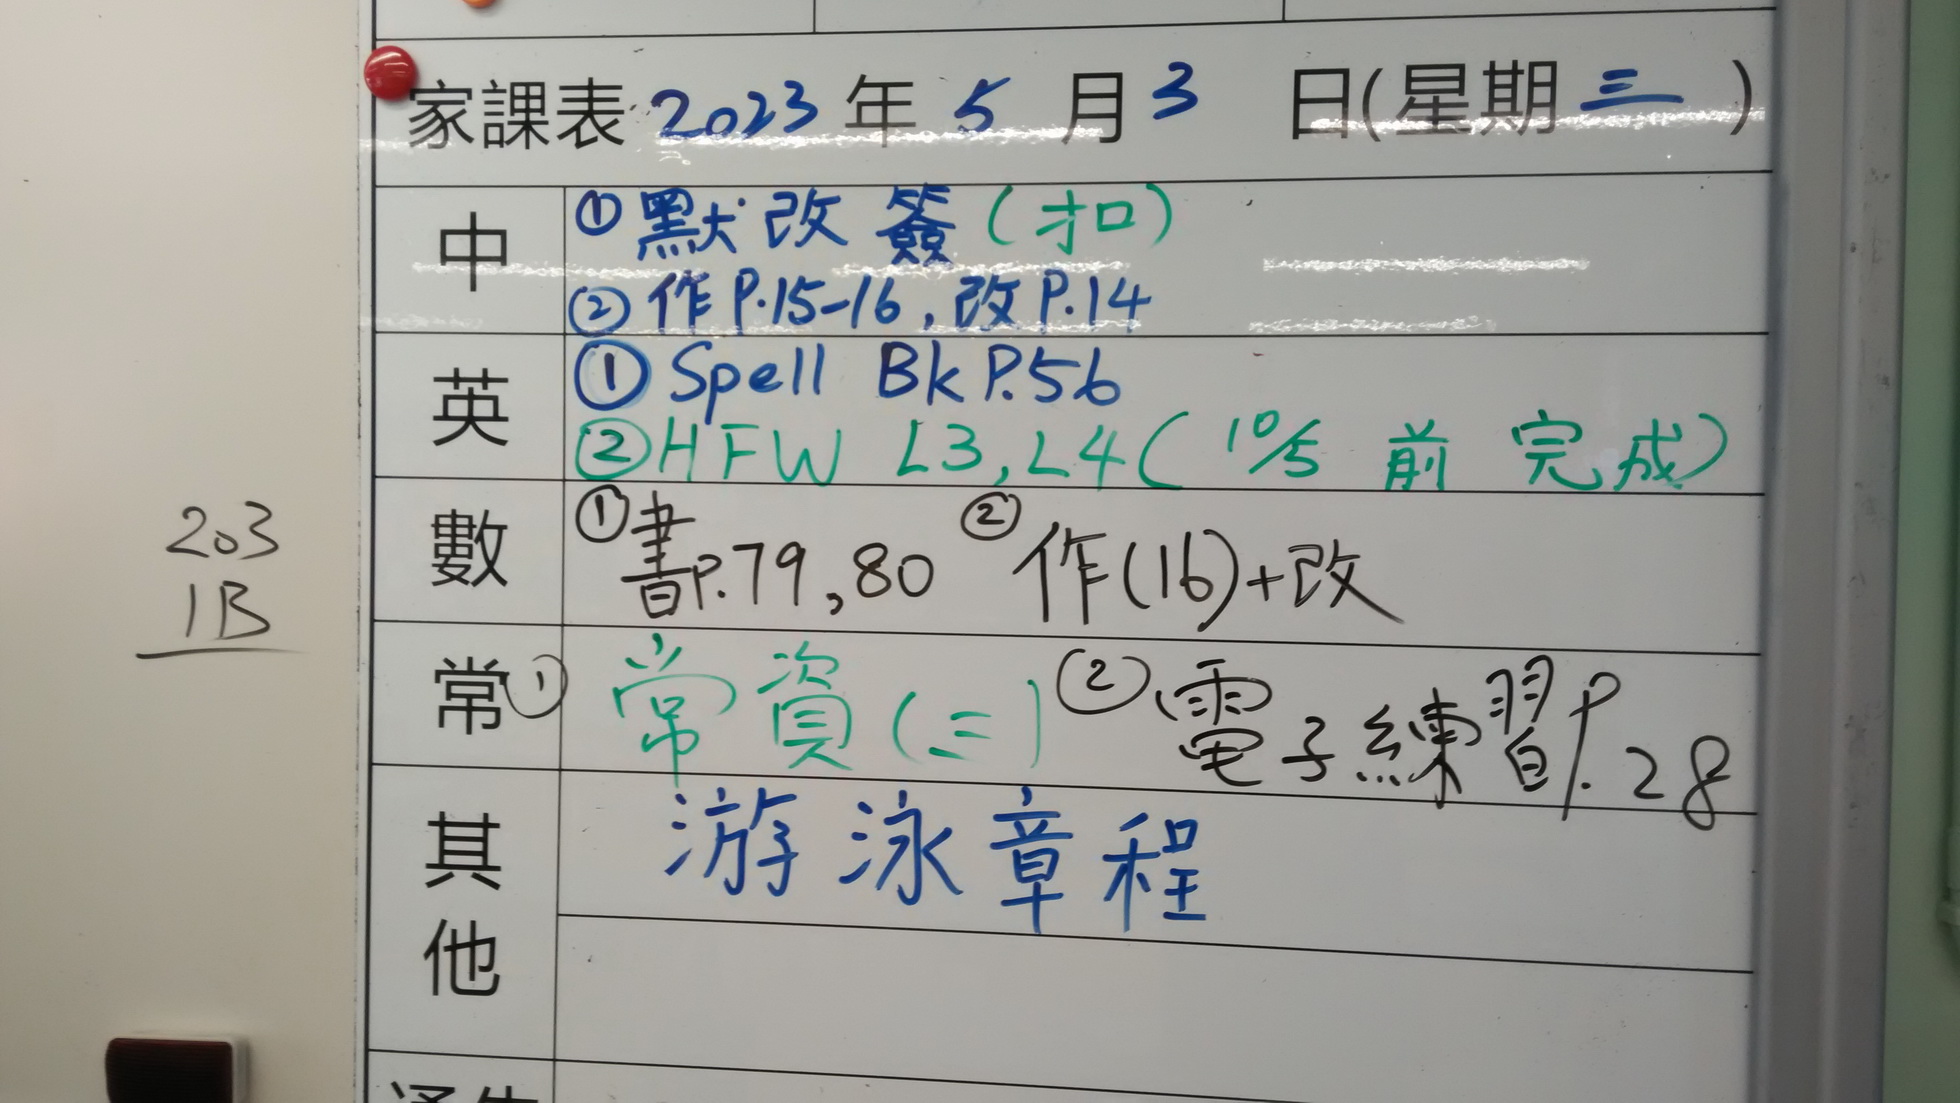 家課表 2023 年 5 月 3 日(星期 三 )
中
① 默 改 簽 (扣)
② 作 P.15-16, 改 P.14
英
① Spell Bk P.56
② HFW L3, L4 ( 10/5 前 完成)
數
① 書P.79,80 ② 作(16)+改
常
① 常資(三) ② 電子練習P.28
其他
游泳章程
203
1B